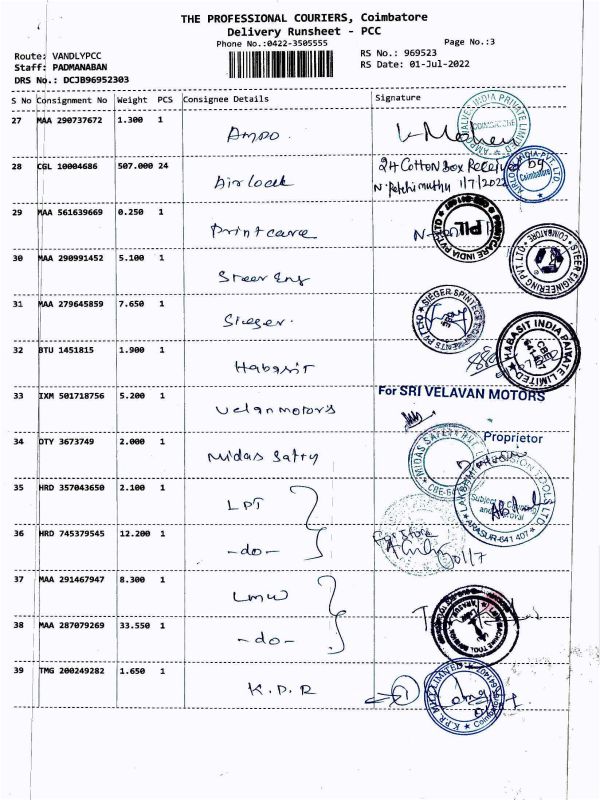 THE PROFESSIONAL COURIERS, Coimbatore
Delivery Runsheet - PCC
Phone No.:0422-3505555
Page No.:3
Route: VANDLYPCC
RS No.: 969523
Staff: PADMANABAN
RS Date: 01-Jul-2022
DRS No.: DCJB96952303
S No Consignment No Weight PCS Consignee Details Signature
27 MAA 290737672 1.300 1
AMPO.
28 CGL 10004686 507.000 24 Airlock 24 Cotton Box Received by
N. Petchimuthu 1/7/2022
AIRLOCK INDIA PVT. LTD
Coimbatore
29 MAA 561639669 0.250 1 Printcare
PRINTCARE INDIA PVT LTD
PIL
30 MAA 290991452 5.100 1 Steer Eng
STEER ENGINEERING PVT. LTD.
COIMBATORE
31 MAA 279645859 7.650 1 Sieger.
SIEGER SPINTECH EQUIPMENTS PVT LTD
32 BTU 1451815 1.900 1 Habasit
HABASIT INDIA PRIVATE LIMITED
CBE
641 407
33 IXM 501718756 5.200 1 Velan motors
For SRI VELAVAN MOTORS
Proprietor
34 DTY 3673749 2.000 1 Midas Safty
MIDAS SAFETY
35 HRD 357043650 2.100 1 LPT
LAKSHMI PRECISION TOOLS LTD
ARASUR-641 407
36 HRD 745379545 12.200 1 -do-
For Store
37 MAA 291467947 8.300 1 LMW
38 MAA 287079269 33.550 1 -do-
39 TMG 200249282 1.650 1 K.P.R
1
K.P.R. MILL LIMITED